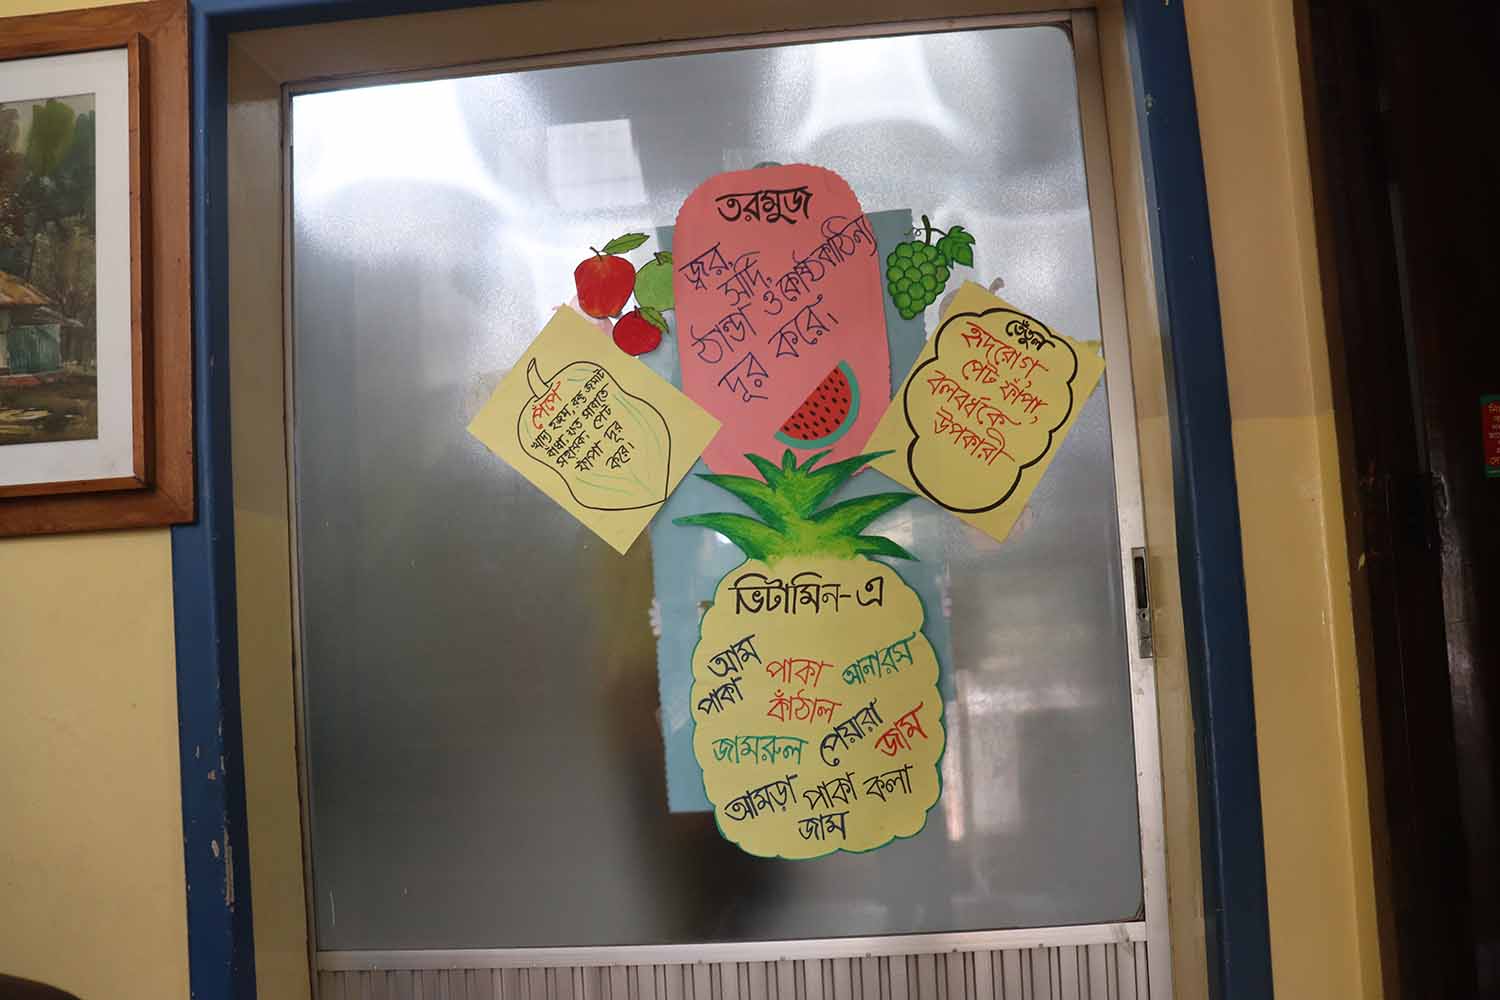 তরমুজ
জ্বর, সর্দি,
ঠান্ডা ও কোষ্ঠকাঠিন্য
দূর করে।
পেঁপে
খাদ্য হজম, রক্ত জমাট
বাধা, ক্ষত সারাতে
সহায়ক, পেট
ফাঁপা দূর
করে।
তেঁতুল
হৃদরোগ,
পেট ফাঁপা,
বলবর্ধকে
উপকারী
ভিটামিন-এ
আম
পাকা
পাকা
কাঁঠাল
আনারস
জামরুল
পেয়ারা
জাম
আমড়া
পাকা কলা
জাম